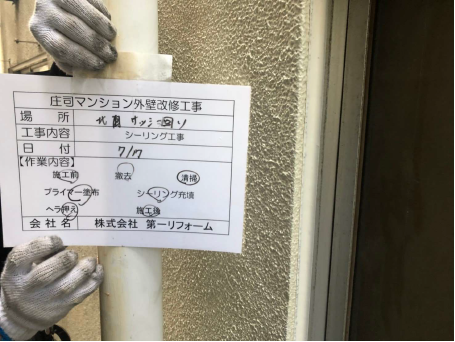 庄司マンション外壁改修工事
場 所 北面 サッシ回り
工事内容 シーリング工事
日 付 7/17
【作業内容】
施工前 撤去 清掃
プライマー塗布 シーリング充填
ヘラ押え 施工後
会 社 名 株式会社 第一リフォーム